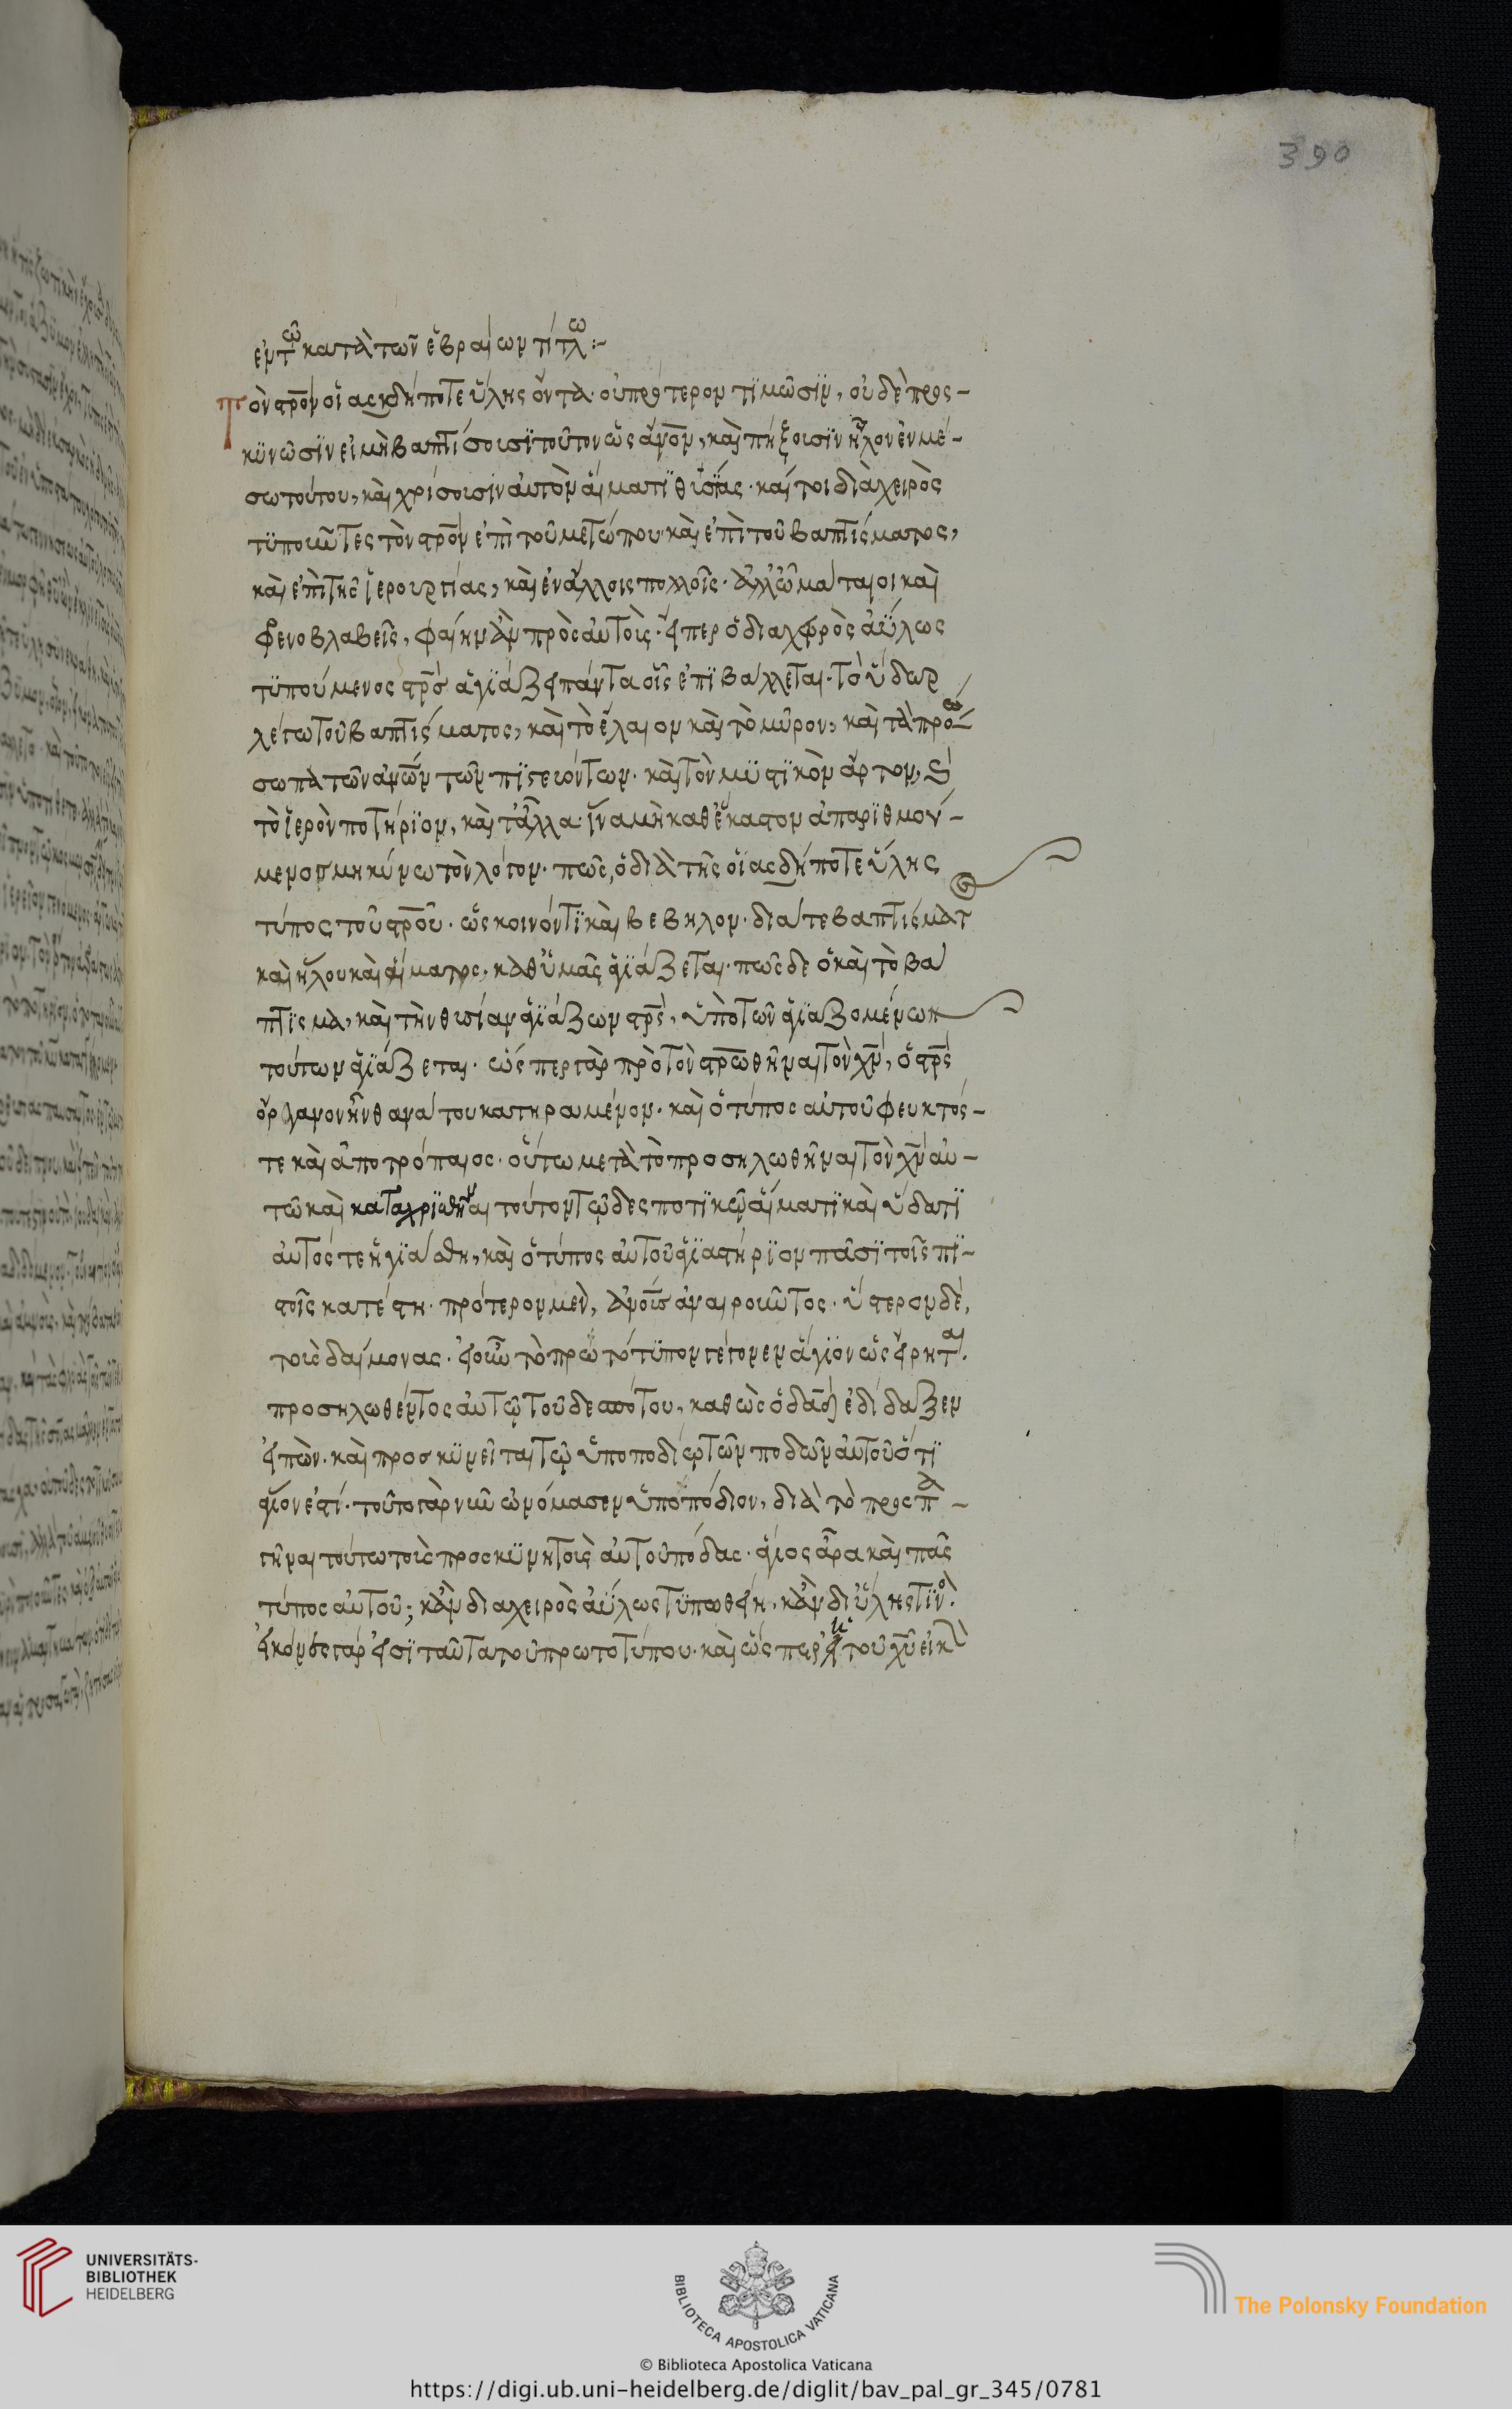 390
ἐν τῶ κατὰ τῶν ἑβραίων τίτλω:-
Τὸν σρὸν οἵας δήποτε ὕλης ὄντα· οὐ πρότερον τϊμῶσϊν, οὐδὲ προς-
κϋνῶσϊν εἰ μὴ βαπτίσουσϊ τοῦτον ὡς ἄνον, καὶ πήξουσϊν ἧλον ἐν μέ-
σω τούτου, καὶ χρίσουσιν αὐτὸν αἵματϊ θυσίας· καίτοι διὰ χειρὸς
τϋποῦντες τὸν σρὸν ἐπὶ τοῦ μετώπου καὶ ἐπὶ τοῦ βαπτίσματος,
καὶ ἐπὶ τῆς ἱερουργίας, καὶ ἐν ἄλλοις πολλοῖς· ἀλλ' ὦ μάταιοι καὶ
φρενοβλαβεῖς, φαίην ἂν πρὸς αὐτοὺς· εἴπερ ὁ διὰ χειρὸς ἀΰλως
τϋπούμενος σρὸς ἁγϊάζει πάντα οἷς ἐπϊβάλλεται· τὸ ὕδωρ
λέγω τοῦ βαπτίσματος, καὶ τὸ ἔλαιον καὶ τὸ μῦρον, καὶ τὰ πρό-
σωπα τῶν ἀνῶν τῶν πϊστευόντων· καὶ τὸν μϋστϊκὸν ἄρτον, καὶ
τὸ ἱερὸν ποτήρϊον, καὶ τἆλλα· ἵνα μὴ καθ' ἕκαστον ἀπαρϊθμού-
μενος μηκύνω τὸν λόγον· πῶς, ὁ διὰ τῆς οἵας δήποτε ὕλης
τύπος τοῦ σροῦ· ὡς κοινόν τϊ καὶ βέβηλον· διά τε βαπτίσματος
καὶ ἥλου καὶ αἵματος, καθ' ὑμᾶς ἁγϊάζεται· πῶς δὲ ὁ καὶ τὸ βά
πτϊσμα, καὶ τὴν θυσίαν ἁγϊάζων σρὸς, ὑπὸ τῶν ἁγϊαζομένων
τούτων ἁγϊάζεται· ὥσπερ γὰρ πρὸ τοῦ σρωθῆναι τὸν χν, ὁ σρὸς
ὄργανον ἦν θανάτου κατηραμένον· καὶ ὁ τύπος αὐτοῦ φευκτός-
τε καὶ ἀποτρόπαιος· οὕτω μετὰ τὸ προσηλωθῆναι τὸν χν αὐ-
τῶ καὶ καταχρϊσθῆναι τοῦτον τῷ δεσποτϊκῷ αἵματϊ καὶ ὕδατϊ
αὐτός τε ἡγϊάσθη, καὶ ὁ τύπος αὐτοῦ ἁγϊαστήρϊον πᾶσϊ τοῖς πϊ-
στοῖς κατέστη· πρότερον μὲν, ἀνοὺς ἀναιροῦντος· ὕστερον δὲ,
τοὺς δαίμονας· εἰ οὖν τὸ πρωτότϋπον γέγονεν ἅγϊον ὡς εἴρηται.
προσηλωθέντος αὐτῷ τοῦ δεσπότου, καθὼς ὁ δαδ ἐδίδαξεν
εἰπὼν· καὶ προσκϋνεῖται τῷ ὑποποδίῳ τῶν ποδῶν αὐτοῦ ὅτϊ
ἅγϊόν ἐστί· τοῦτο γὰρ νῦν ὠνόμασεν ὑποπόδιον, διὰ τὸ προςπα-
γῆναι τούτω τοὺς προσκϋνητοὺς αὐτοῦ πόδας· ἅγϊος ἄρα καὶ πᾶς
τύπος αὐτοῦ; κἂν διὰ χειρὸς ἀΰλως τϋπωθείη, κἂν δι' ὕλης τϊνός.
εἰκόνες γάρ εἰσϊ ταῦτα τοῦ πρωτοτύπου· καὶ ὥσπερ ἡ τοῦ χυ εἰκὼν
UNIVERSITÄTS-
BIBLIOTHEK
HEIDELBERG
BIBLIOTECA APOSTOLICA VATICANA
The Polonsky Foundation
© Biblioteca Apostolica Vaticana
https://digi.ub.uni-heidelberg.de/diglit/bav_pal_gr_345/0781